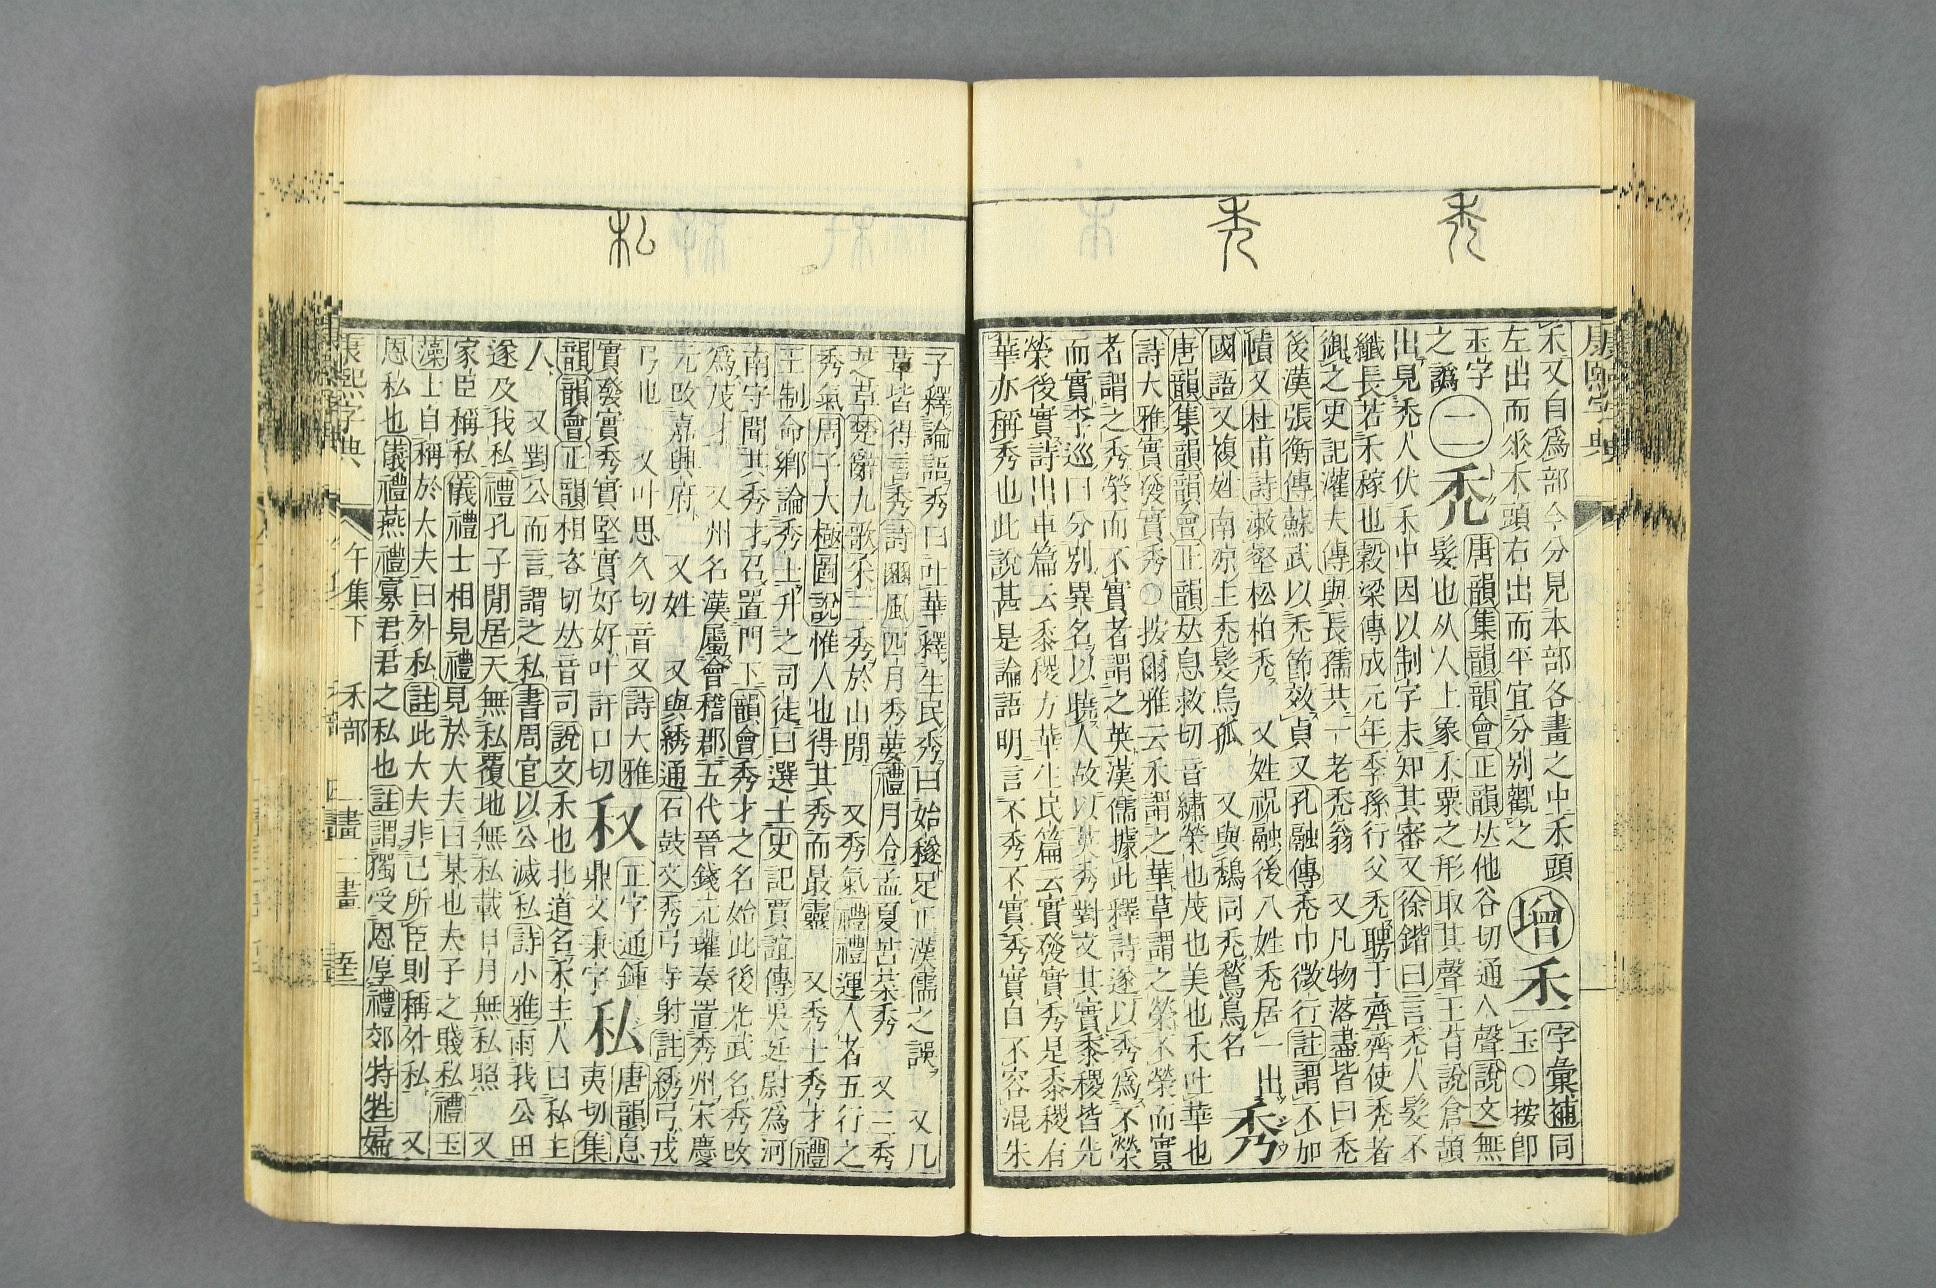 禾又自爲部今分見本部各畫之中禾頭
左出而𣎵木頭右出而平宜分別觀之
増 禾 字彙補同
玉○按卽
玉字
之譌 二 禿 唐韻集韻韻會正韻𠀤他谷切通入聲說文無
髮也从人上象禾粟之形取其聲王育說倉頡
出見禿人伏禾中因以制字未知其審又徐鍇曰言禿人髮不
纖長若禾稼也穀梁傳成元年季孫行父禿聘于齊齊使禿者
御之史記灌夫傳與長孺共一老禿翁 又凡物落盡皆曰禿
後漢張衡傳蘇武以禿節效貞又孔融傳禿巾微行註謂不加
幘又杜甫詩漱壑松柏禿 又姓祝融後八姓禿居一出
國語又複姓南涼主禿髮烏孤 又與鵚同禿鶖鳥名 秀
唐韻集韻韻會正韻𠀤息救切音繡榮也茂也美也禾吐華也
詩大雅實發實秀○按爾雅云禾謂之華草謂之榮不榮而實
者謂之秀榮而不實者謂之英漢儒據此釋詩遂以秀爲不榮
而實李巡曰分別異名以曉人故以英秀對文其實黍稷皆先
榮後實詩出車篇云黍稷方華生民篇云實發實秀是黍稷有
華亦稱秀也此說甚是論語明言不秀不實秀實自不容混朱
康熙字典
子釋論語秀曰吐華釋生民秀曰始穟足正漢儒之誤 又凡
草皆得言秀詩豳風四月秀葽禮月令孟夏苦菜秀 又三秀
芝草楚辭九歌采三秀於山閒 又秀氣禮禮運人者五行之
秀氣周子大極圖說惟人也得其秀而最靈 又秀士秀才禮
王制命鄉論秀士升之司徒曰選士史記賈誼傳吳廷尉爲河
南守聞其秀才召置門下韻會秀才之名始此後光武名秀改
爲茂才 又州名漢屬會稽郡五代晉錢元瓘奏置秀州宋慶
元改嘉興府 又姓 又與綉通石鼓文秀弓寺射註綉弓戎
弓也 又叶思久切音叉詩大雅
實發實秀實堅實好好叶許口切 𥝠 正字通鍾
鼎文秉字 私 唐韻息
夷切集
韻韻會正韻相咨切𠀤音司說文禾也北道名禾主人曰私主
人 又對公而言謂之私書周官以公滅私詩小雅雨我公田
遂及我私禮孔子閒居天無私覆地無私載日月無私照 又
家臣稱私儀禮士相見禮見於大夫曰某也夫子之賤私禮玉
藻士自稱於大夫曰外私註此大夫非己所臣則稱外私 又
恩私也儀禮燕禮寡君君之私也註謂獨受恩厚禮郊特牲婦
康熙字典 午集下 禾部 二畫